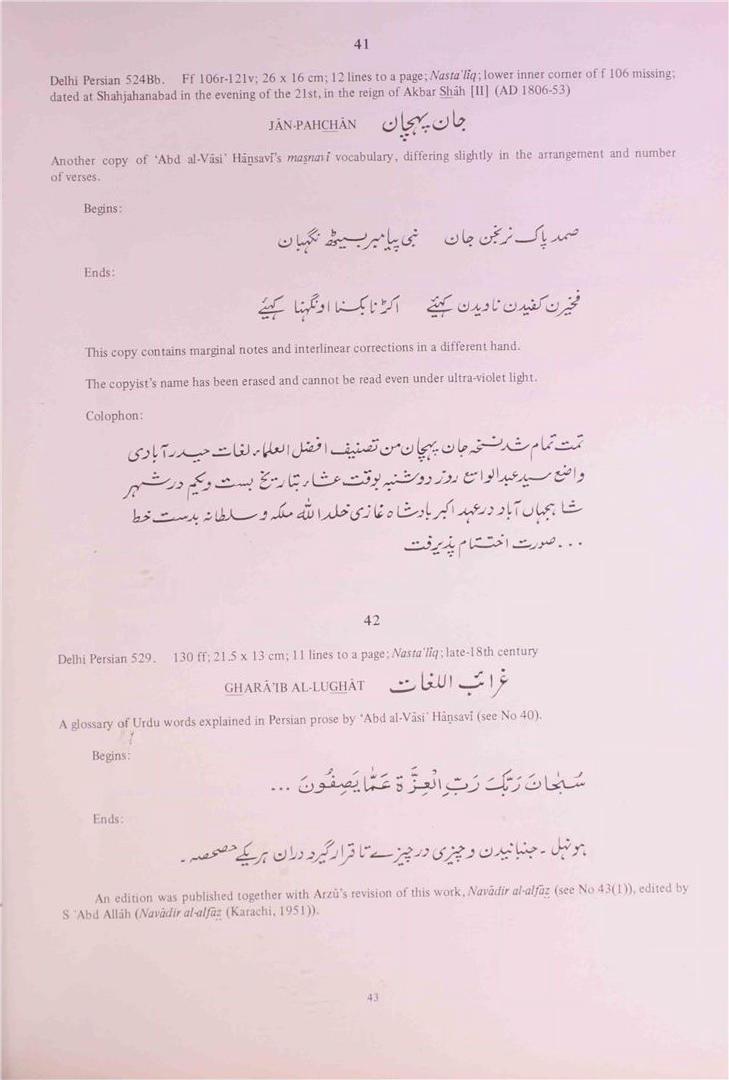 41
Delhi Persian 524Bb. Ff 106r-121v; 26 x 16 cm; 12 lines to a page; Nasta'līq; lower inner corner of f 106 missing;
dated at Shahjahanabad in the evening of the 21st, in the reign of Akbar Shāh [II] (AD 1806-53)
JĀN-PAHCHĀN جان پہچان
Another copy of 'Abd al-Vāsi' Hāṉsavī's masnavī vocabulary, differing slightly in the arrangement and number
of verses.
Begins:
صمد پاک نرنجن جان نبی پیامبر بسیٹھ نگہبان
Ends:
کفیدن نادیدن کہئے اکڑنا بکسنا اونگہنا کہیئے
This copy contains marginal notes and interlinear corrections in a different hand.
The copyist's name has been erased and cannot be read even under ultra-violet light.
Colophon:
تمت تمام شد نسخہ جان پہچان من تصنیف افضل العلماء لغات حیدرآبادی
واضع سید عبدالواسع روز دوشنبہ بوقت عشاء بتاریخ بست ویکم در شہر
شاہجہاں آباد در عہد اکبر بادشاہ غازی خلد اللہ ملکہ و سلطانہ بدست خط
... صورت اختتام پذیرفت
42
Delhi Persian 529. 130 ff; 21.5 x 13 cm; 11 lines to a page; Nasta'līq; late-18th century
GHARĀ'IB AL-LUGHĀT غرائب اللغات
A glossary of Urdu words explained in Persian prose by 'Abd al-Vāsi' Hāṉsavī (see No 40).
Begins:
سُبْحَانَ رَبِّكَ رَبِّ الْعِزَّةِ عَمَّا يَصِفُونَ ...
Ends:
ہونہل ـ جنبانیدن و چیزی در چیزے تا قرار گیرد دران ہریکے حصحصہ ـ
An edition was published together with Arzū's revision of this work, Navādir al-alfāẓ (see No 43(1)), edited by
S 'Abd Allāh (Navādir al-alfāẓ (Karachi, 1951)).
43